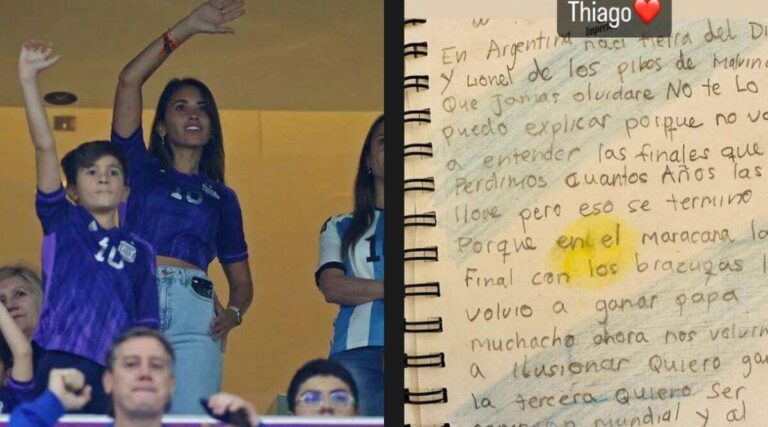 Thiago❤️
En Argentina naci tierra del Di
Y Lionel de los pibes de Malvina
Que Jamas olvidare NO te Lo
puedo explicar porque no va
a entender las finales que
Perdimos cuantos Años las
llore pero eso se termino
Porque en el maracana la
Final con los brazugas l
volvio a ganar papa
muchacho ahora nos volvim
a Ilusionar Quiero gan
la tercera Quiero Ser
mundial y al
10
10